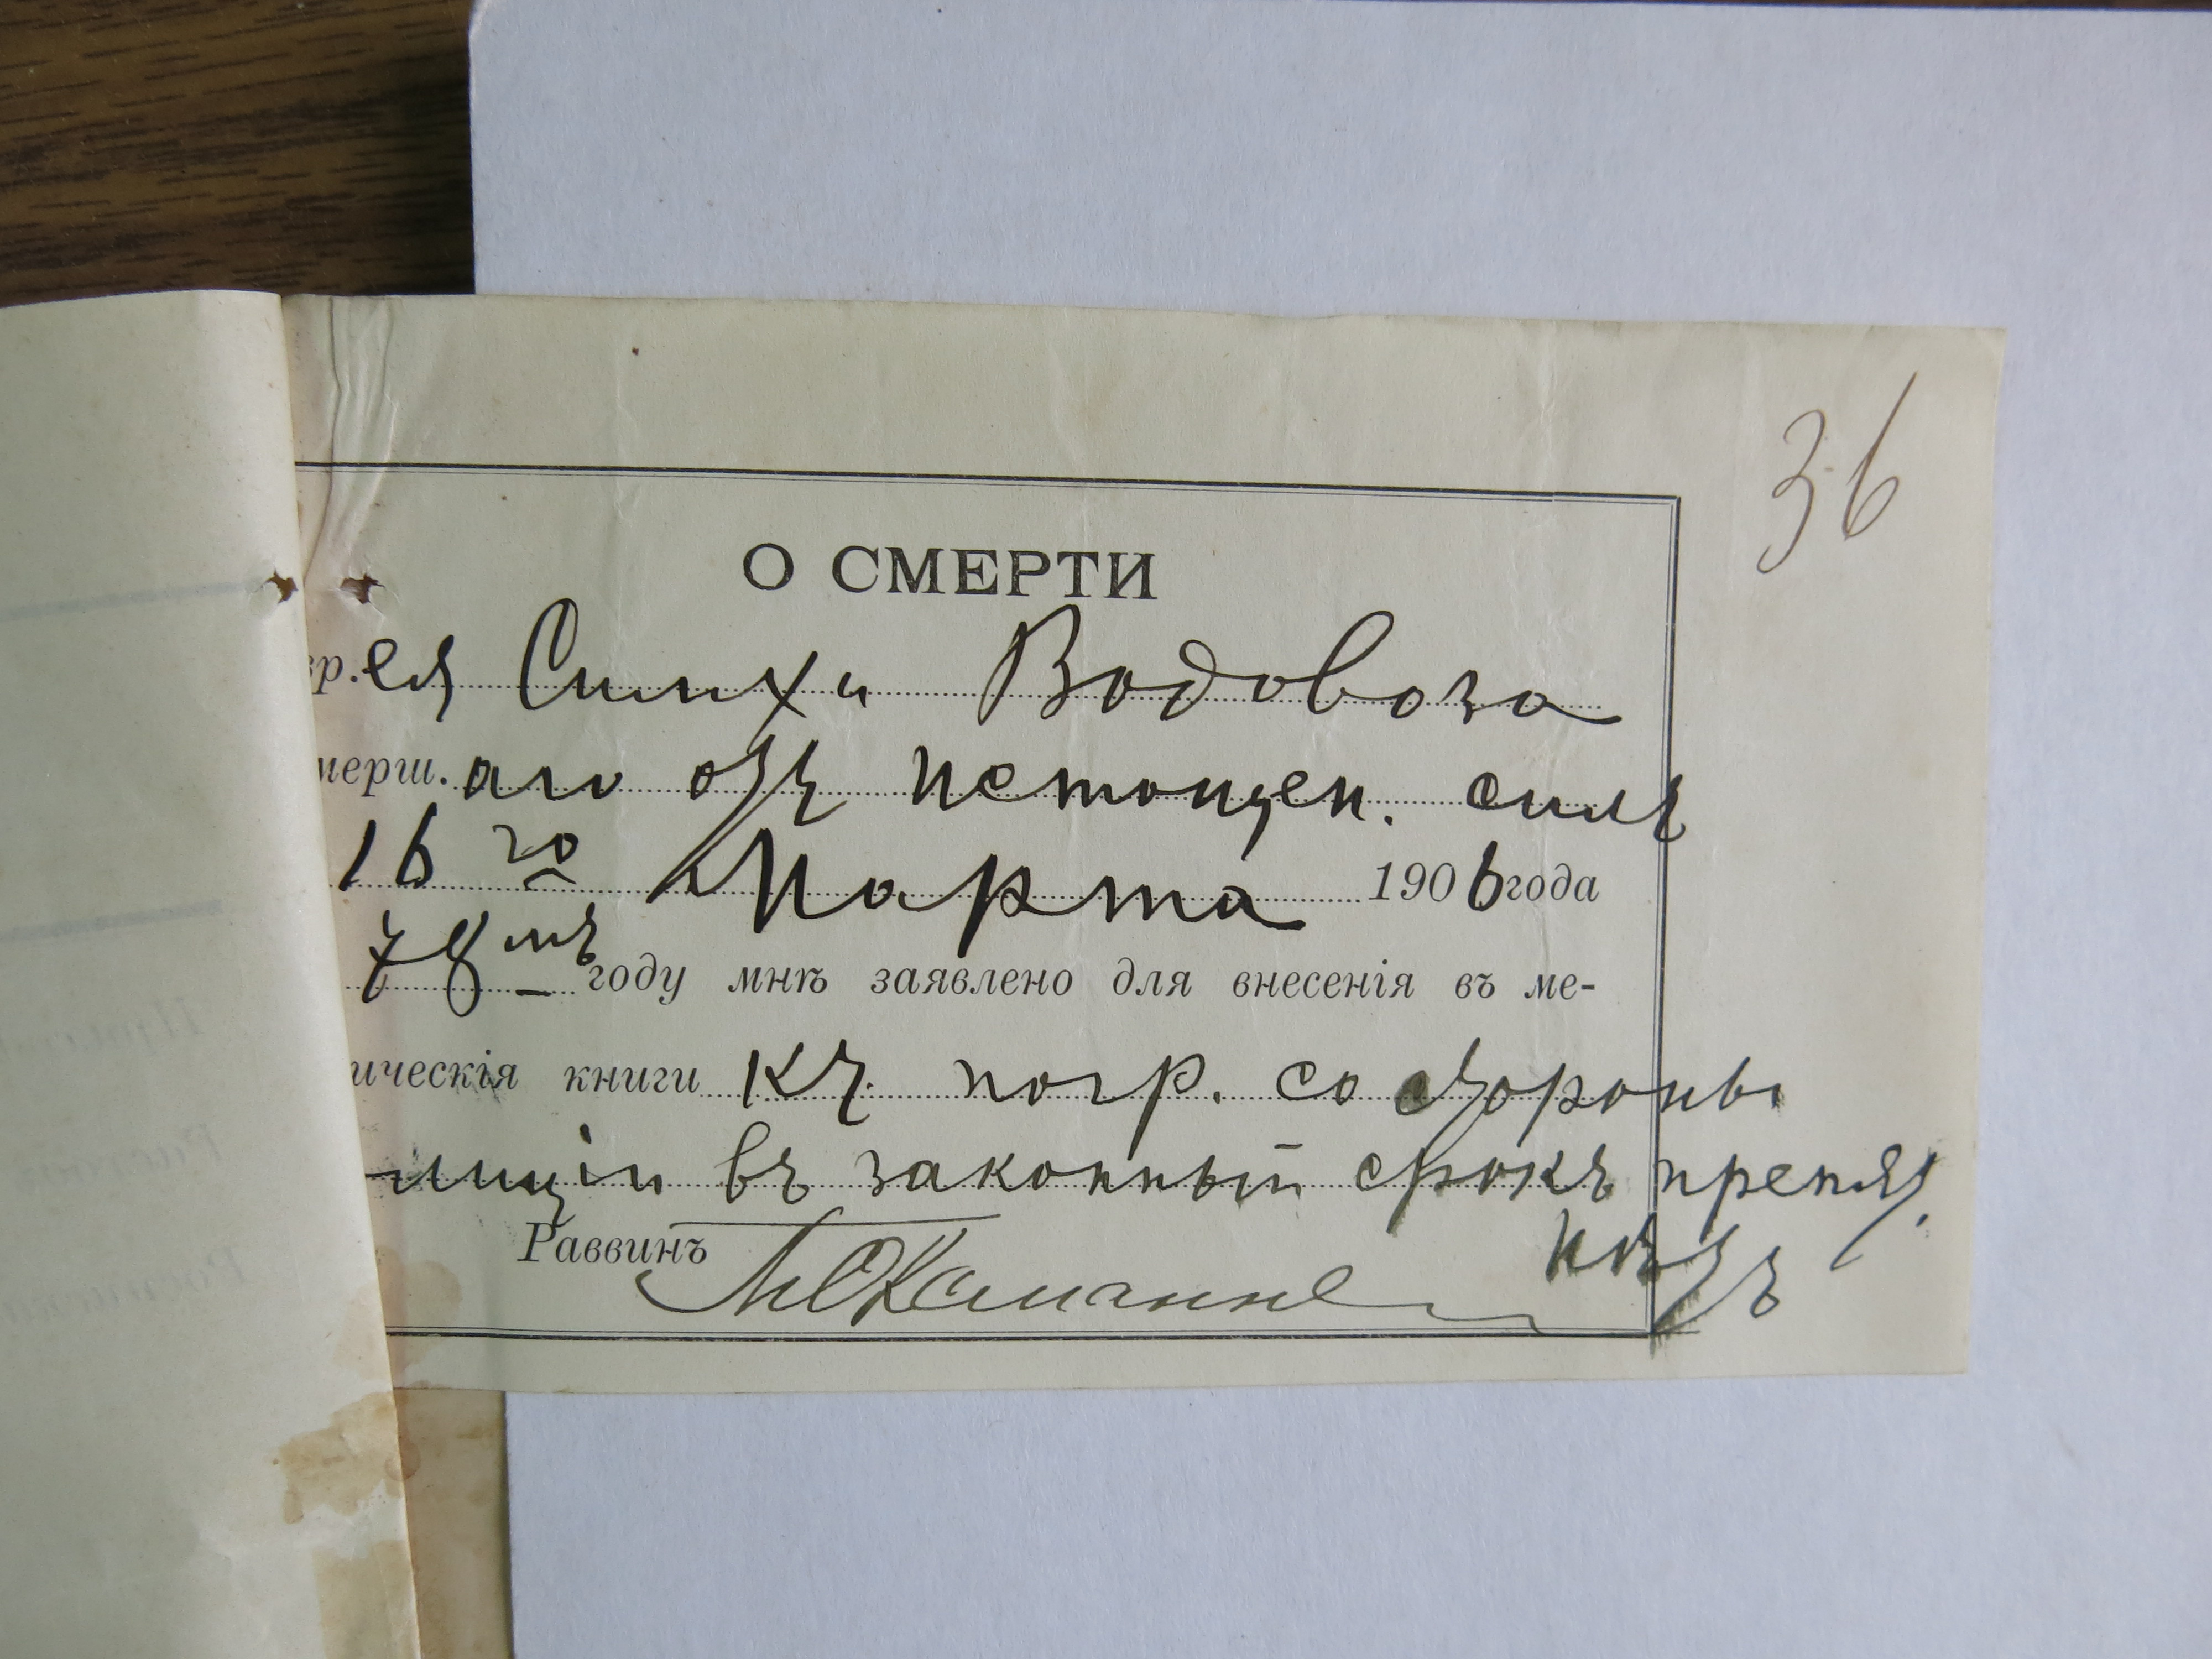 36
О СМЕРТИ
вр.ея Симхи Водовоза
мерш.аго отъ истощен. силъ
16го Марта 1906 года
78мъ году мнѣ заявлено для внесенія въ ме-
ическія книги Къ погр. со стороны
лиціи въ законный срокъ препят.
нѣтъ
Раввинъ